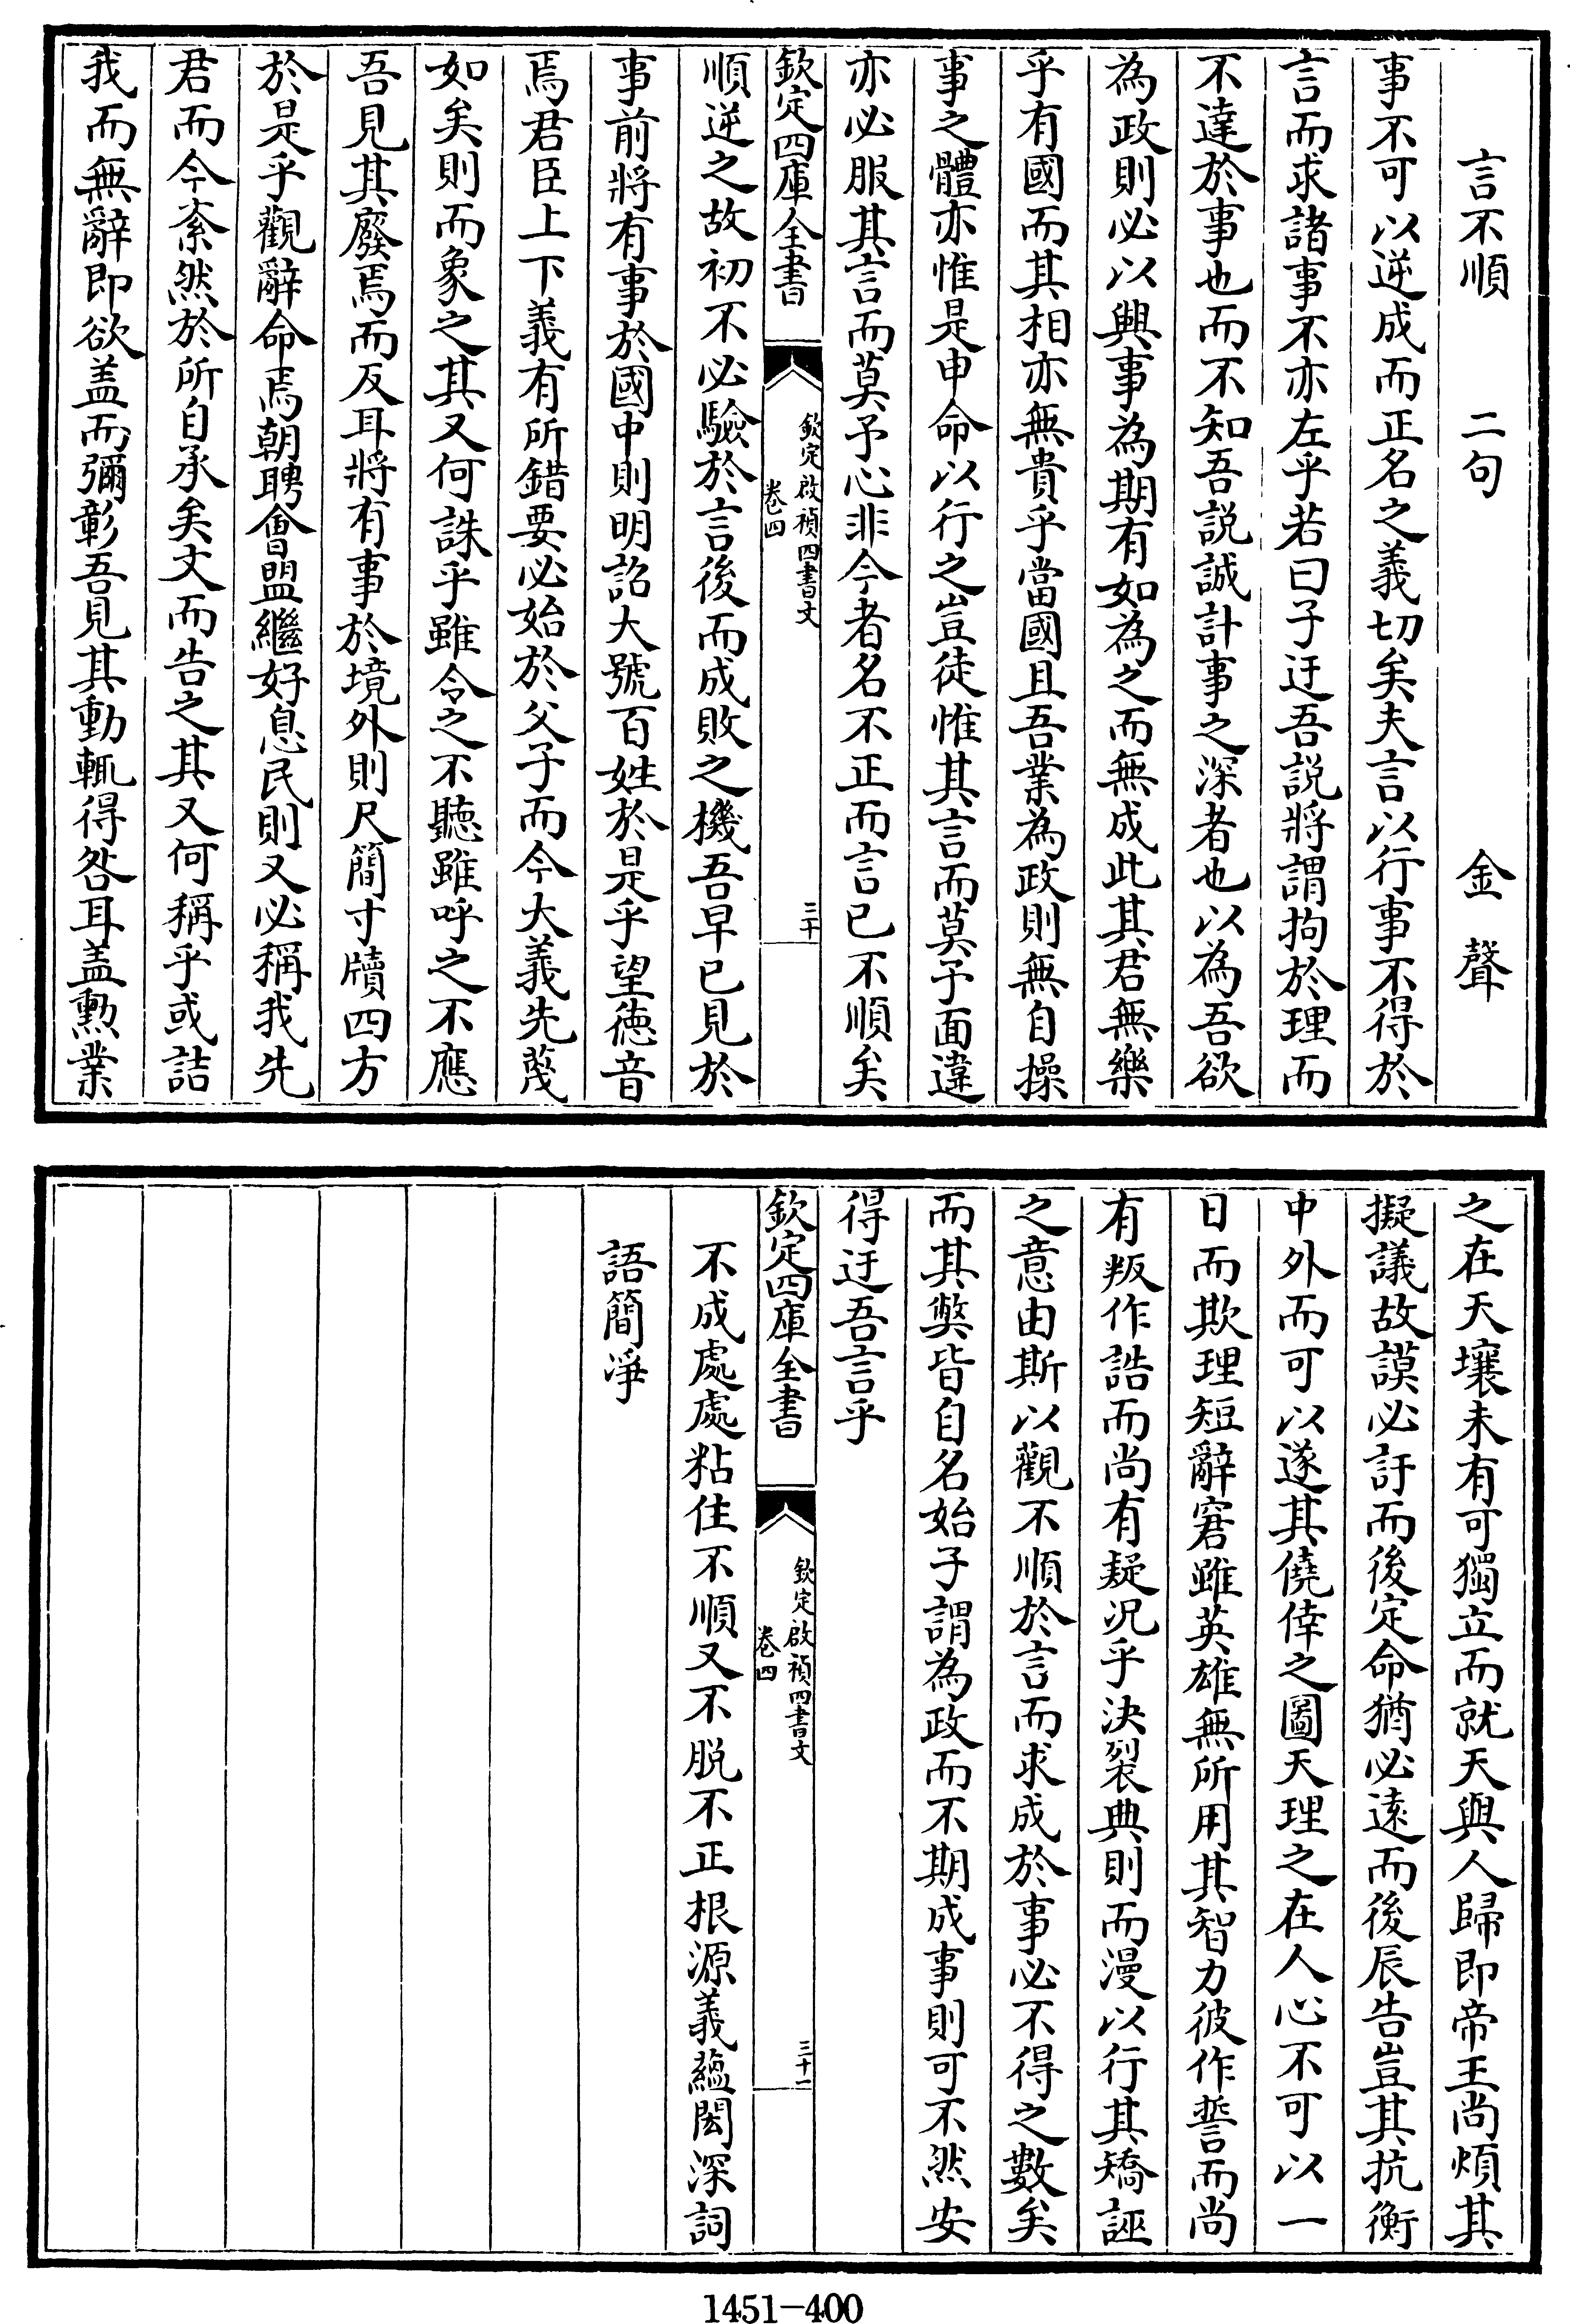 言不順　二句　金聲
事不可以逆成而正名之義切矣夫言以行事不得於
言而求諸事不亦左乎若曰子迂吾説將謂拘於理而
不達於事也而不知吾説誠計事之深者也以為吾欲
為政則必以興事為期有如為之而無成此其君無樂
乎有國而其相亦無貴乎當國且吾業為政則無自操
事之體亦惟是申命以行之豈徒惟其言而莫予面違
亦必服其言而莫予心非今者名不正而言已不順矣
欽定四庫全書
欽定啟禎四書文
卷四
三十
順逆之故初不必驗於言後而成敗之機吾早已見於
事前將有事於國中則明詔大號百姓於是乎望徳音
焉君臣上下義有所錯要必始於父子而今大義先蔑
如矣則而象之其又何誅乎雖令之不聽雖呼之不應
吾見其廢焉而反耳將有事於境外則尺簡寸牘四方
於是乎觀辭命焉朝聘會盟繼好息民則又必稱我先
君而今紊然於所自承矣文而告之其又何稱乎或詰
我而無辭即欲盖而彌彰吾見其動輒得咎耳盖勲業
之在天壤未有可獨立而就天與人歸即帝王尚煩其
擬議故謨必訏而後定命猶必遠而後辰告豈其抗衡
中外而可以遂其僥倖之圖天理之在人心不可以一
日而欺理短辭窘雖英雄無所用其智力彼作誓而尚
有叛作誥而尚有疑况乎決裂典則而漫以行其矯誣
之意由斯以觀不順於言而求成於事必不得之數矣
而其弊皆自名始子謂為政而不期成事則可不然安
得迂吾言乎
欽定四庫全書
欽定啟禎四書文
卷四
三十一
不成處處粘住不順又不脱不正根源義蘊閎深詞
語簡淨
1451-400